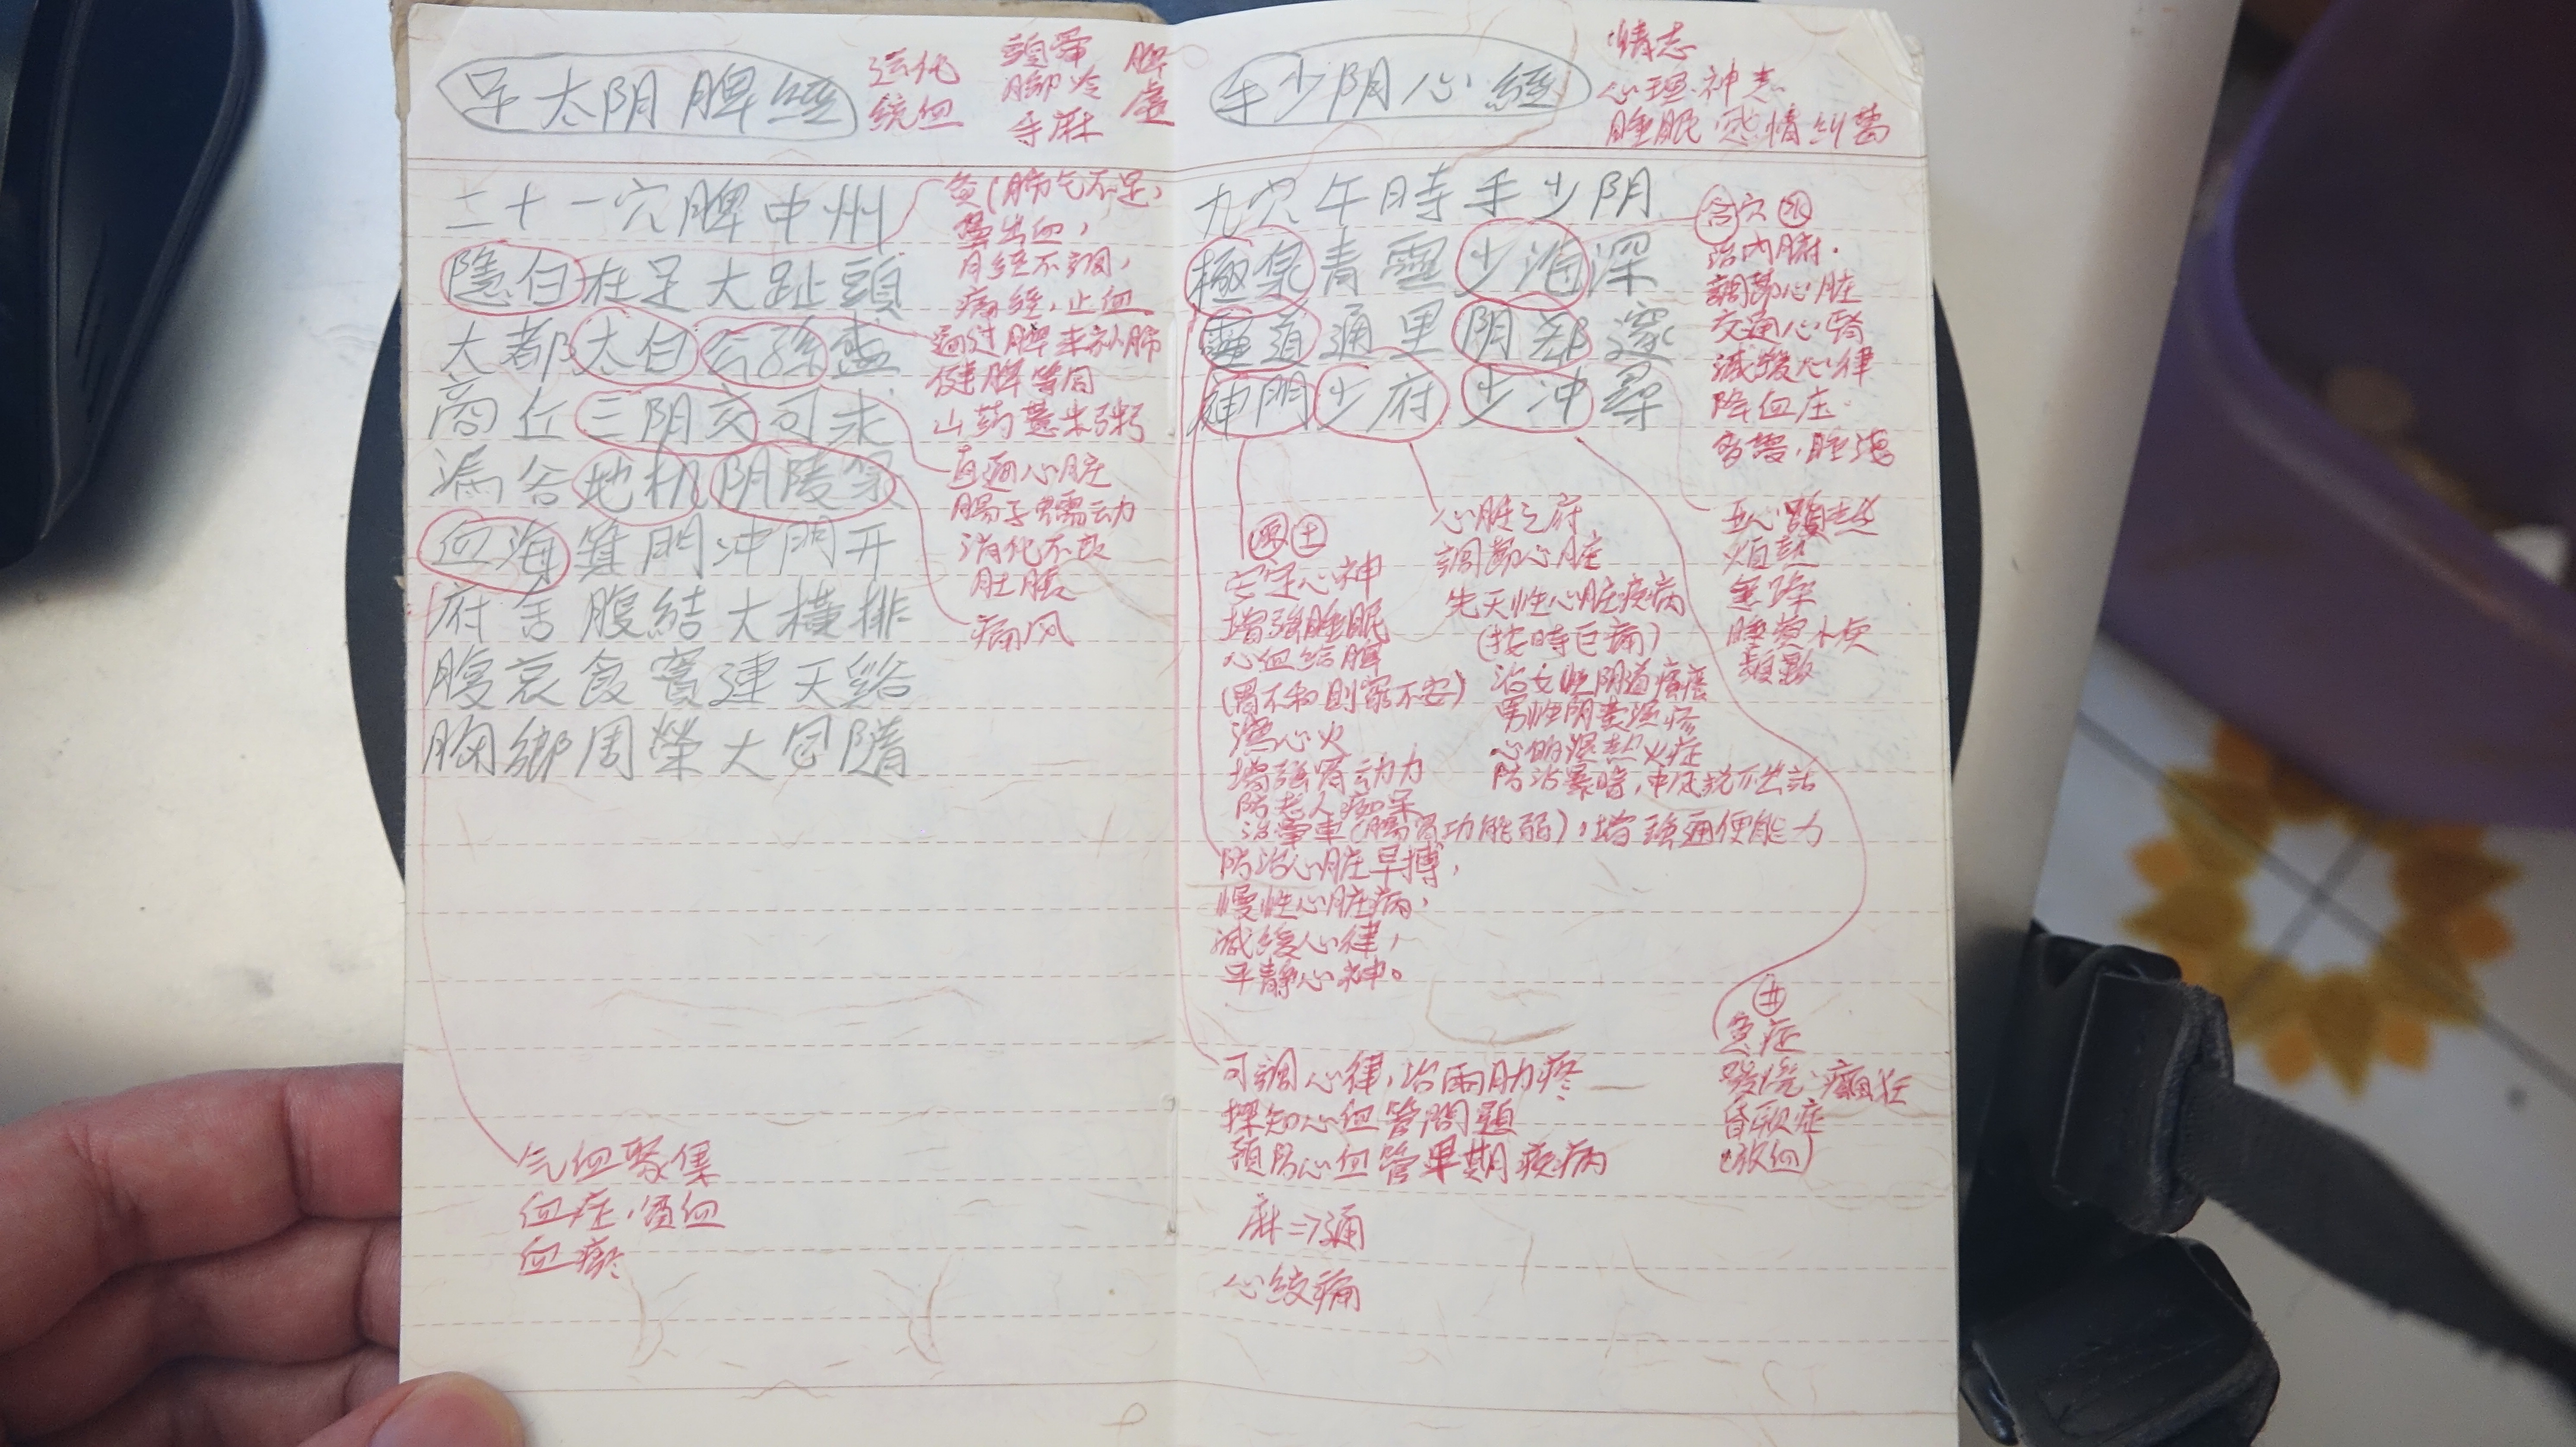 足太阴脾經
运化
統血
頭暈
腳冷
手麻
脾
虛
二十一穴脾中州
隱白在足大趾頭
太都太白公孫盛
商丘三阴交可求
漏谷地机阴陵泉
血海箕門冲門开
府舍腹結大橫排
腹哀食竇連天谿
胸鄉周榮大包隨
灸(肺气不足,
量出血,
月經不調,
痛經,止血
通过脾来补肺
健脾胃同
山药薏米粥
直通心脏
腸子蠕动
消化不良
肚脹
痛风
气血聚集
血症,
血瘀
手少阴心經
情志
心理.神志.
睡眠.感情糾葛
九穴午時手少阴
極泉青靈少海深
靈道通里阴郄邃
神門少府少冲尋
合穴 水
治內臟.
調節心脏
交通心腎
減緩心律
降血压.
煩熱
頻數
原 土
安定心神
增强睡眠
心血給脾
(胃不和則寐不安)
瀉心火
增强胃动力
防老人痴呆
治暈車(腸胃功能弱),增强通便能力
防治心脏早搏,
慢性心脏病,
減緩心律,
平靜心神。
心脏之府
調節心脏
先天性心脏疾病
(按時巨痛)
治女性阴道瘙癢
男性阴囊湿疹
心的湿热火症
井
急症
癲狂
(放血)
可調心律,治兩肋疼
探知心血管問題
預防心血管早期疾病
麻=>通
心绞痛